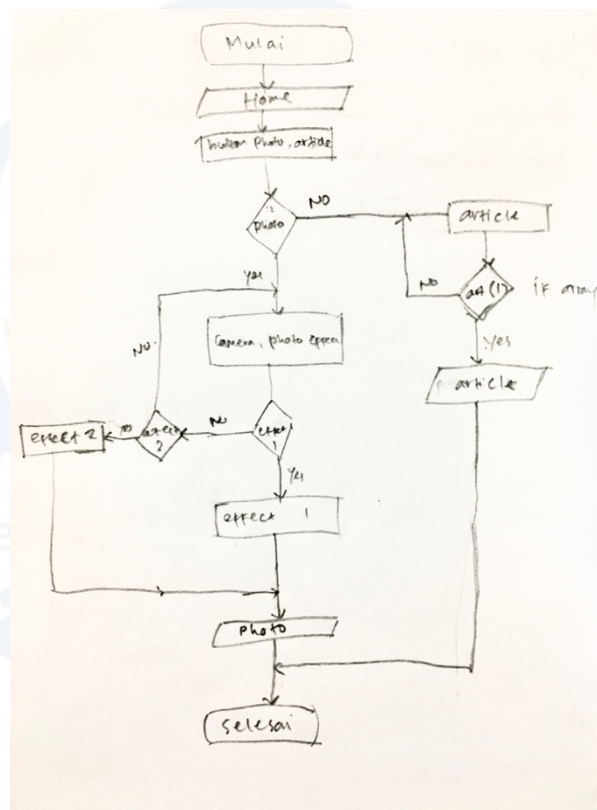 Mulai
Home
photo, article
?
photo
NO
article
NO
art (1)
if array
yes
Yes
article
Camera, photo effect
NO
effect 2
effect
2
NO
effect
1
Yes
effect 1
photo
selesai